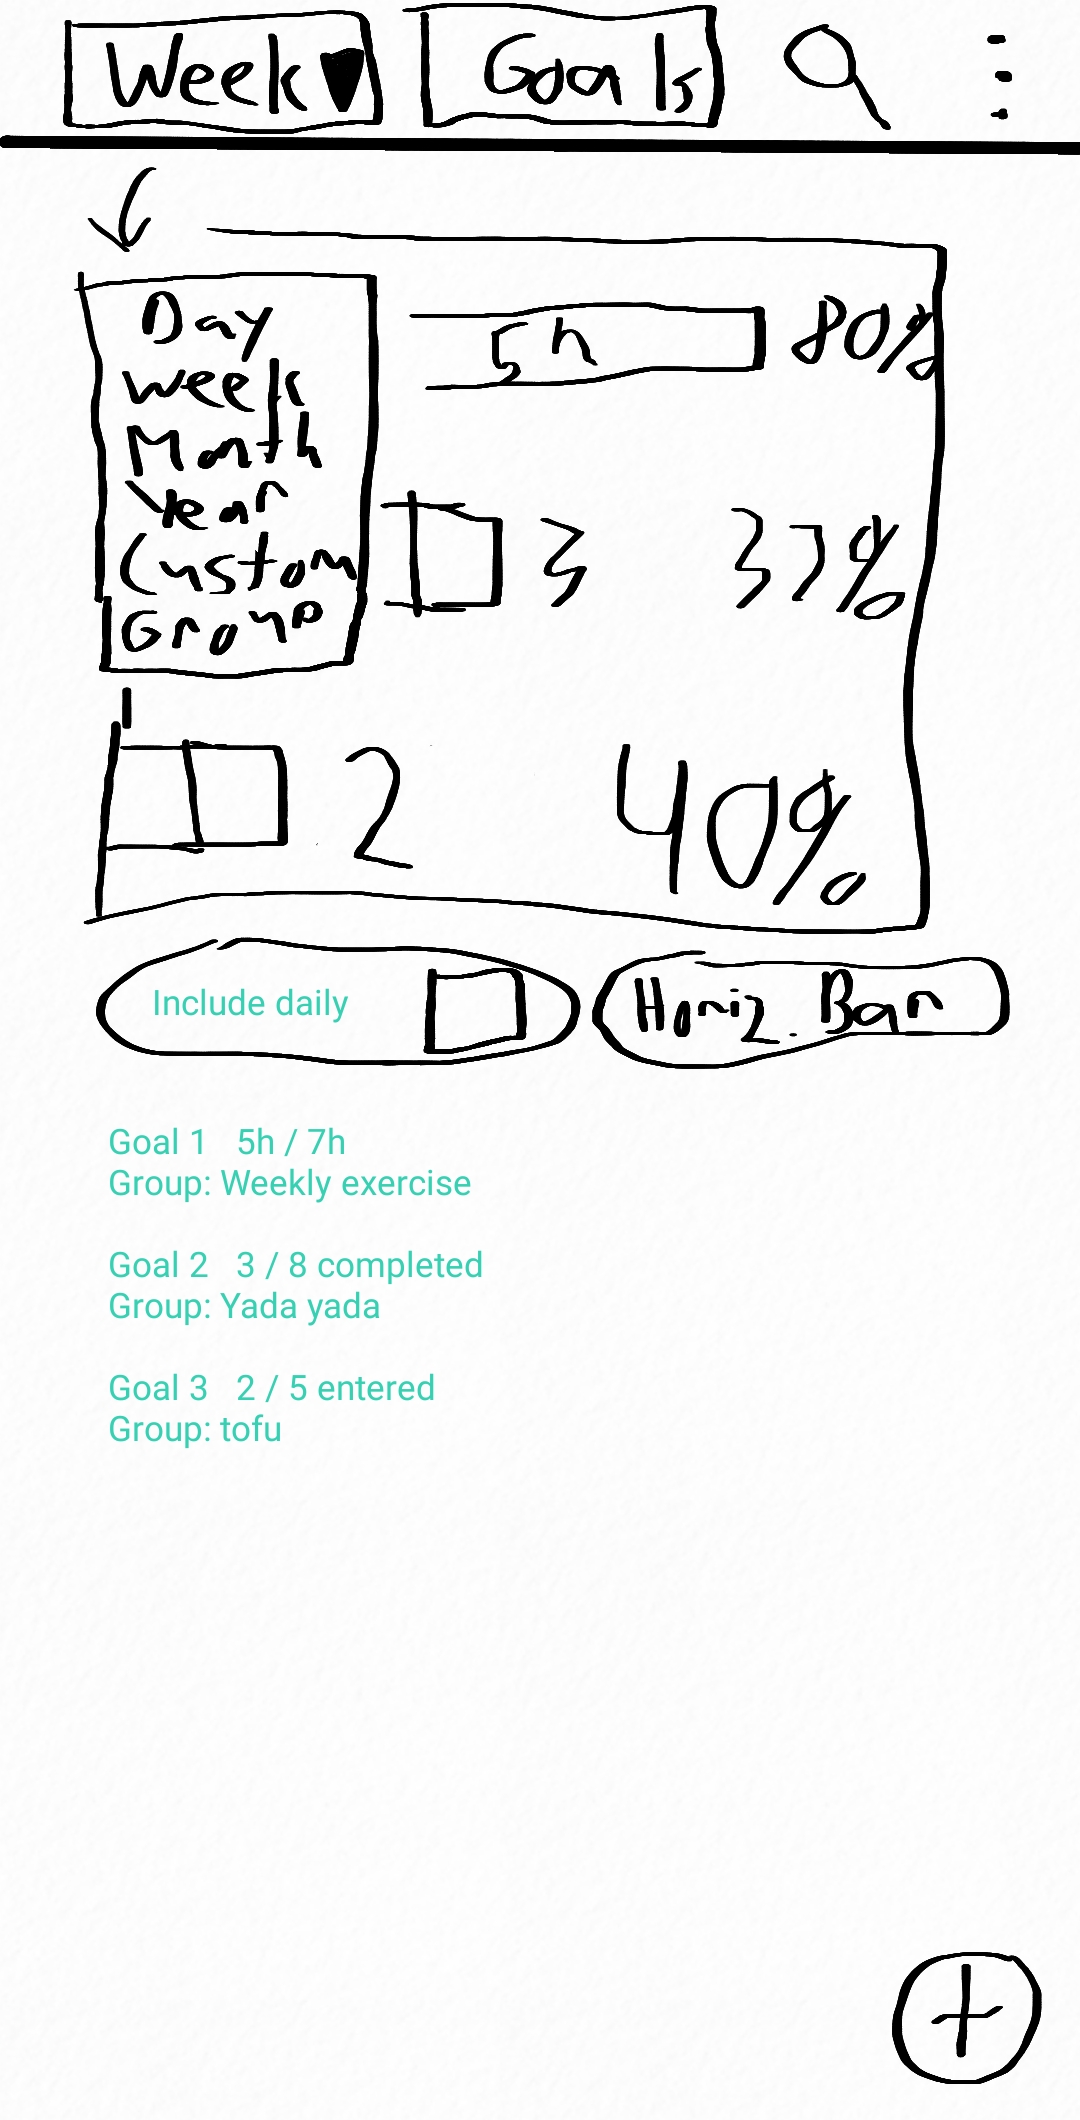 Week Goals
Day
week
Month
Year
Custom
Group
5h 80%
3 37%
2 40%
Include daily
Horiz. Bar
Goal 1 5h / 7h
Group: Weekly exercise
Goal 2 3 / 8 completed
Group: Yada yada
Goal 3 2 / 5 entered
Group: tofu
+